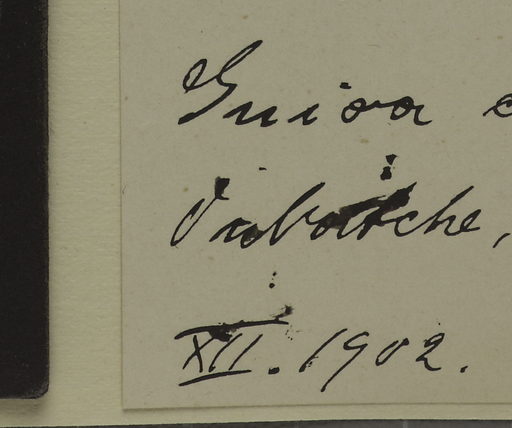 Guioa
Oubatche,
XII. 1902.